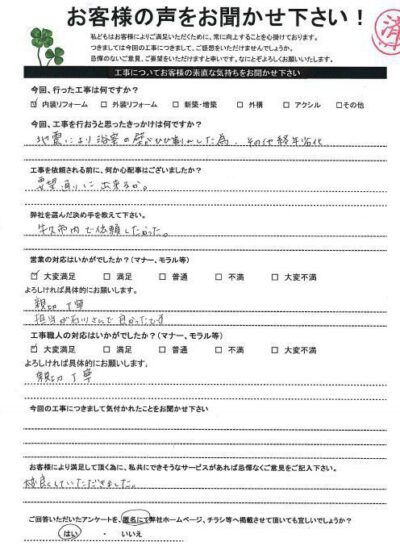 お客様の声をお聞かせ下さい！
済
私どもはお客様によりご満足いただくために、常に向上することを心掛けております。
つきましては今回の工事につきまして、ご感想をいただけませんでしょうか。
忌憚のないご意見、ご要望をいただけますと幸いです。なにとぞよろしくお願いいたします。
工事についてお客様の素直な気持ちをお聞かせ下さい
今回、行った工事は何ですか？
☑ 内装リフォーム □ 外装リフォーム □ 新築・増築 □ 外構 □ アクシル □その他
今回、工事を行おうと思ったきっかけは何ですか？
地震により浴室の壁がひび割れした為、その他経年劣化
工事を依頼される前に、何か心配事はございましたか？
要望通りに出来るか。
弊社を選んだ決め手を教えて下さい。
牛久市内で依頼したかった。
営業の対応はいかがでしたか？（マナー、モラル等）
☑ 大変満足 □ 満足 □ 普通 □ 不満 □ 大変不満
よろしければ具体的にお願いします。
親切 丁寧
担当が石川さんで良かったです
工事職人の対応はいかがでしたか？（マナー、モラル等）
☑ 大変満足 □ 満足 □ 普通 □ 不満 □ 大変不満
よろしければ具体的にお願いします。
親切 丁寧
今回の工事につきまして気付かれたことをお聞かせ下さい
お客様により満足して頂く為に、私共にできそうなサービスがあれば忌憚なくご意見をご記入下さい。
していただきました。
ご回答いただいたアンケートを、匿名にて弊社ホームページ、チラシ等へ掲載させて頂いても宜しいでしょうか？
はい ・ いいえ